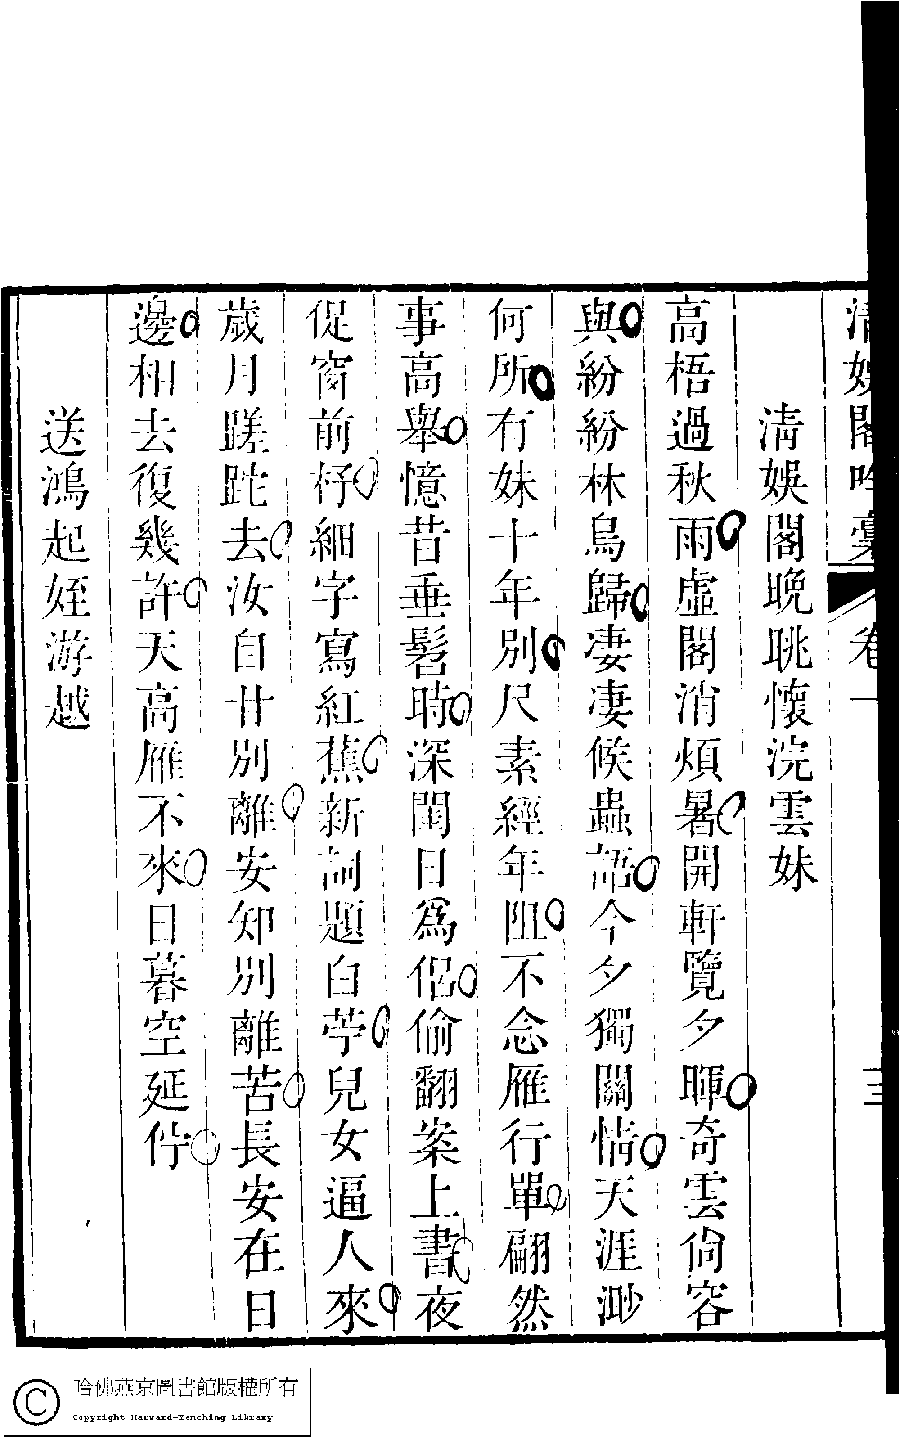 清娛閣吟稾 卷一 三
清娛閣晚眺懷浣雲妹
高梧過秋雨虛閣消煩暑開軒覽夕暉奇雲尙容
與紛紛林烏歸凄凄候蟲語今夕獨關情天涯渺
何所有妹十年別尺素經年阻不念雁行單翩然
事高舉憶昔垂髫時深閨日爲侶偷翻案上書夜
促窗前杼細字寫紅蕉新詞題白苧兒女逼人來
歲月蹉跎去汝自甘別離安知別離苦長安在日
邊相去復幾許天高雁不來日暮空延佇
送鴻起姪游越
哈佛燕京圖書館版權所有
Copyright Harvard-Yenching Library